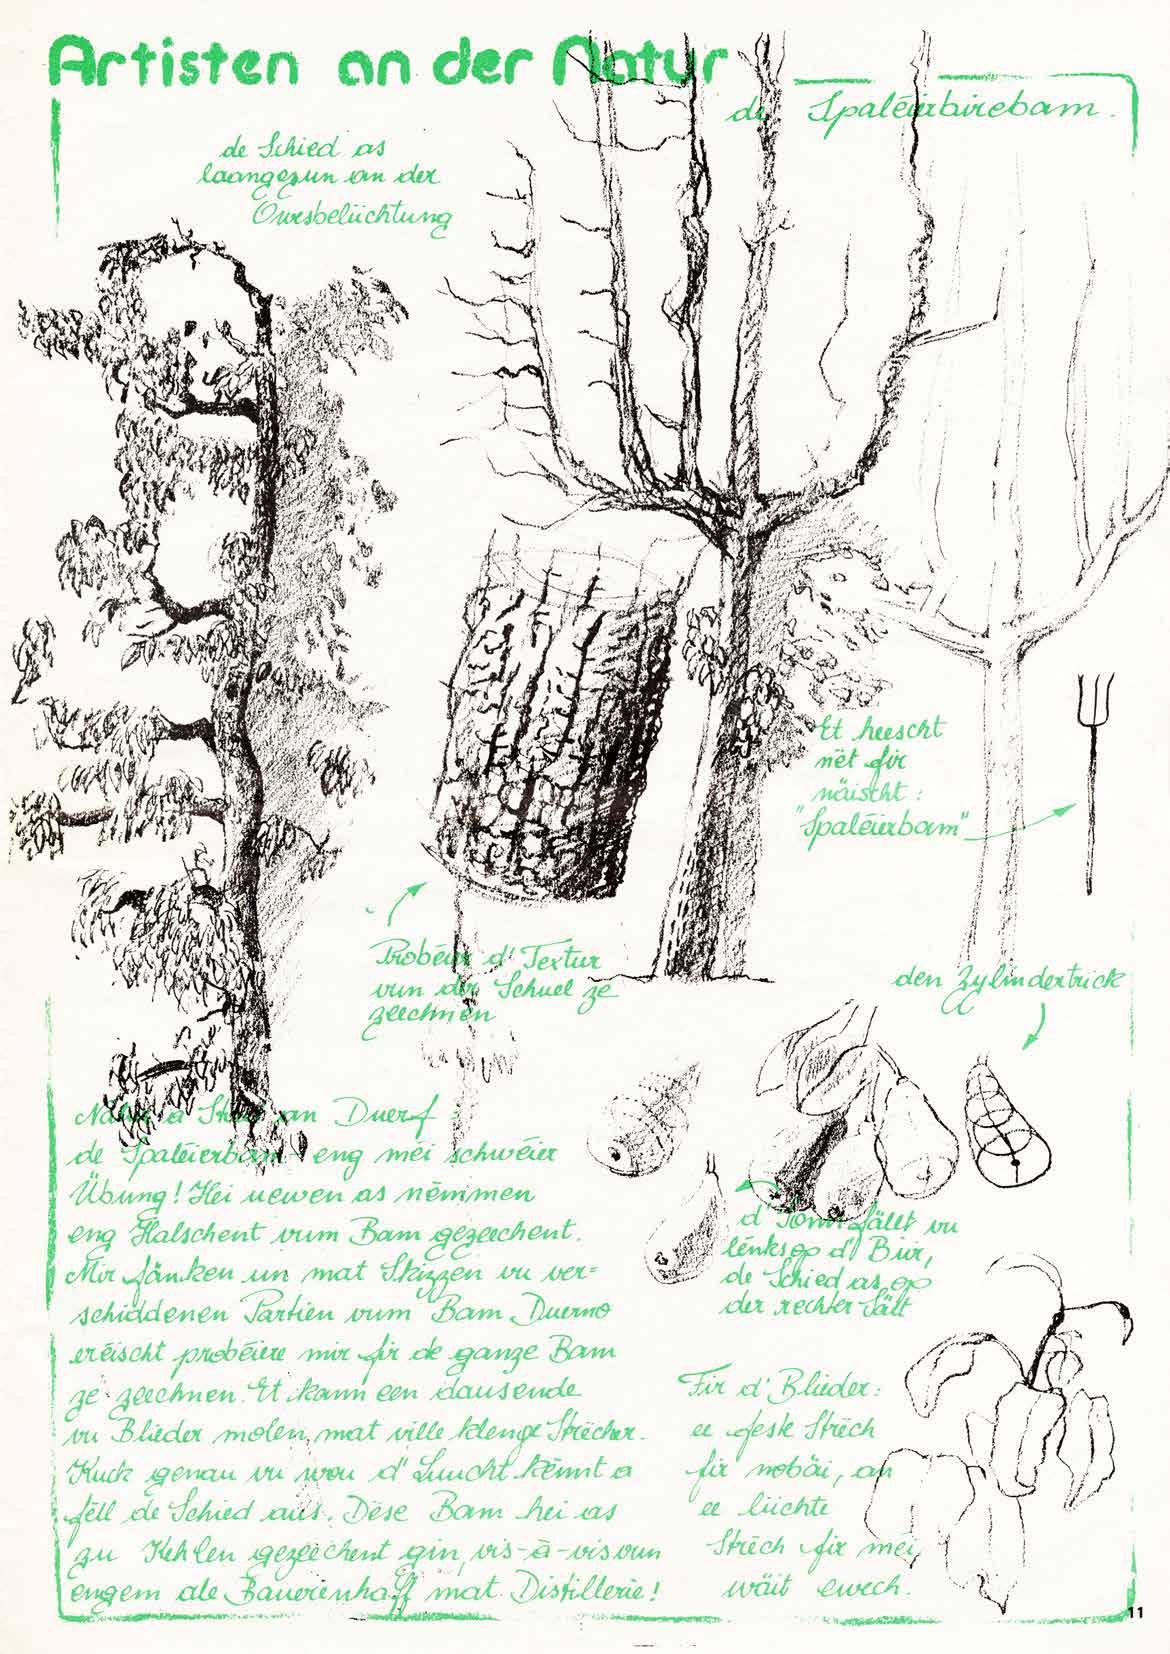 Artisten an der Natur
de Spaléierbirebam.
de Schied as
laangezun an der
Owesbelüchtung
Et heescht
nët fir
näischt:
"Spaléierbam"
Probéier d'Textur
vun der Schuel ze
zeechnen
den Zylindertrick
Natur a Stad an Duerf:
de Spaléierbam - eng méi schwéier
Übung! Hei uewen as nëmmen
eng Halschent vum Bam gezeechent.
Mir fänken un mat Skizzen vu ver=
schiddenen Partien vum Bam Duerno
eréischt probéiere mir fir de ganze Bam
ze zeechnen. Et kann een dausende
vu Blieder molen, mat ville klenge Strécher.
Kuck genau vu wou d'Luucht kënnt a
fëll de Schied aus. Dëse Bam hei as
zu Kehlen gezeechent gin, vis-à-vis vun
engem ale Bauerenhaff mat Distillerie!
d'Sonn fällt vu
lénks op d'Bir,
de Schied as op
der rechter Säit
Fir d'Blieder:
ee feste Strëch
fir nobäi, an
ee liichte
Strëch fir méi
wäit ewech.
11